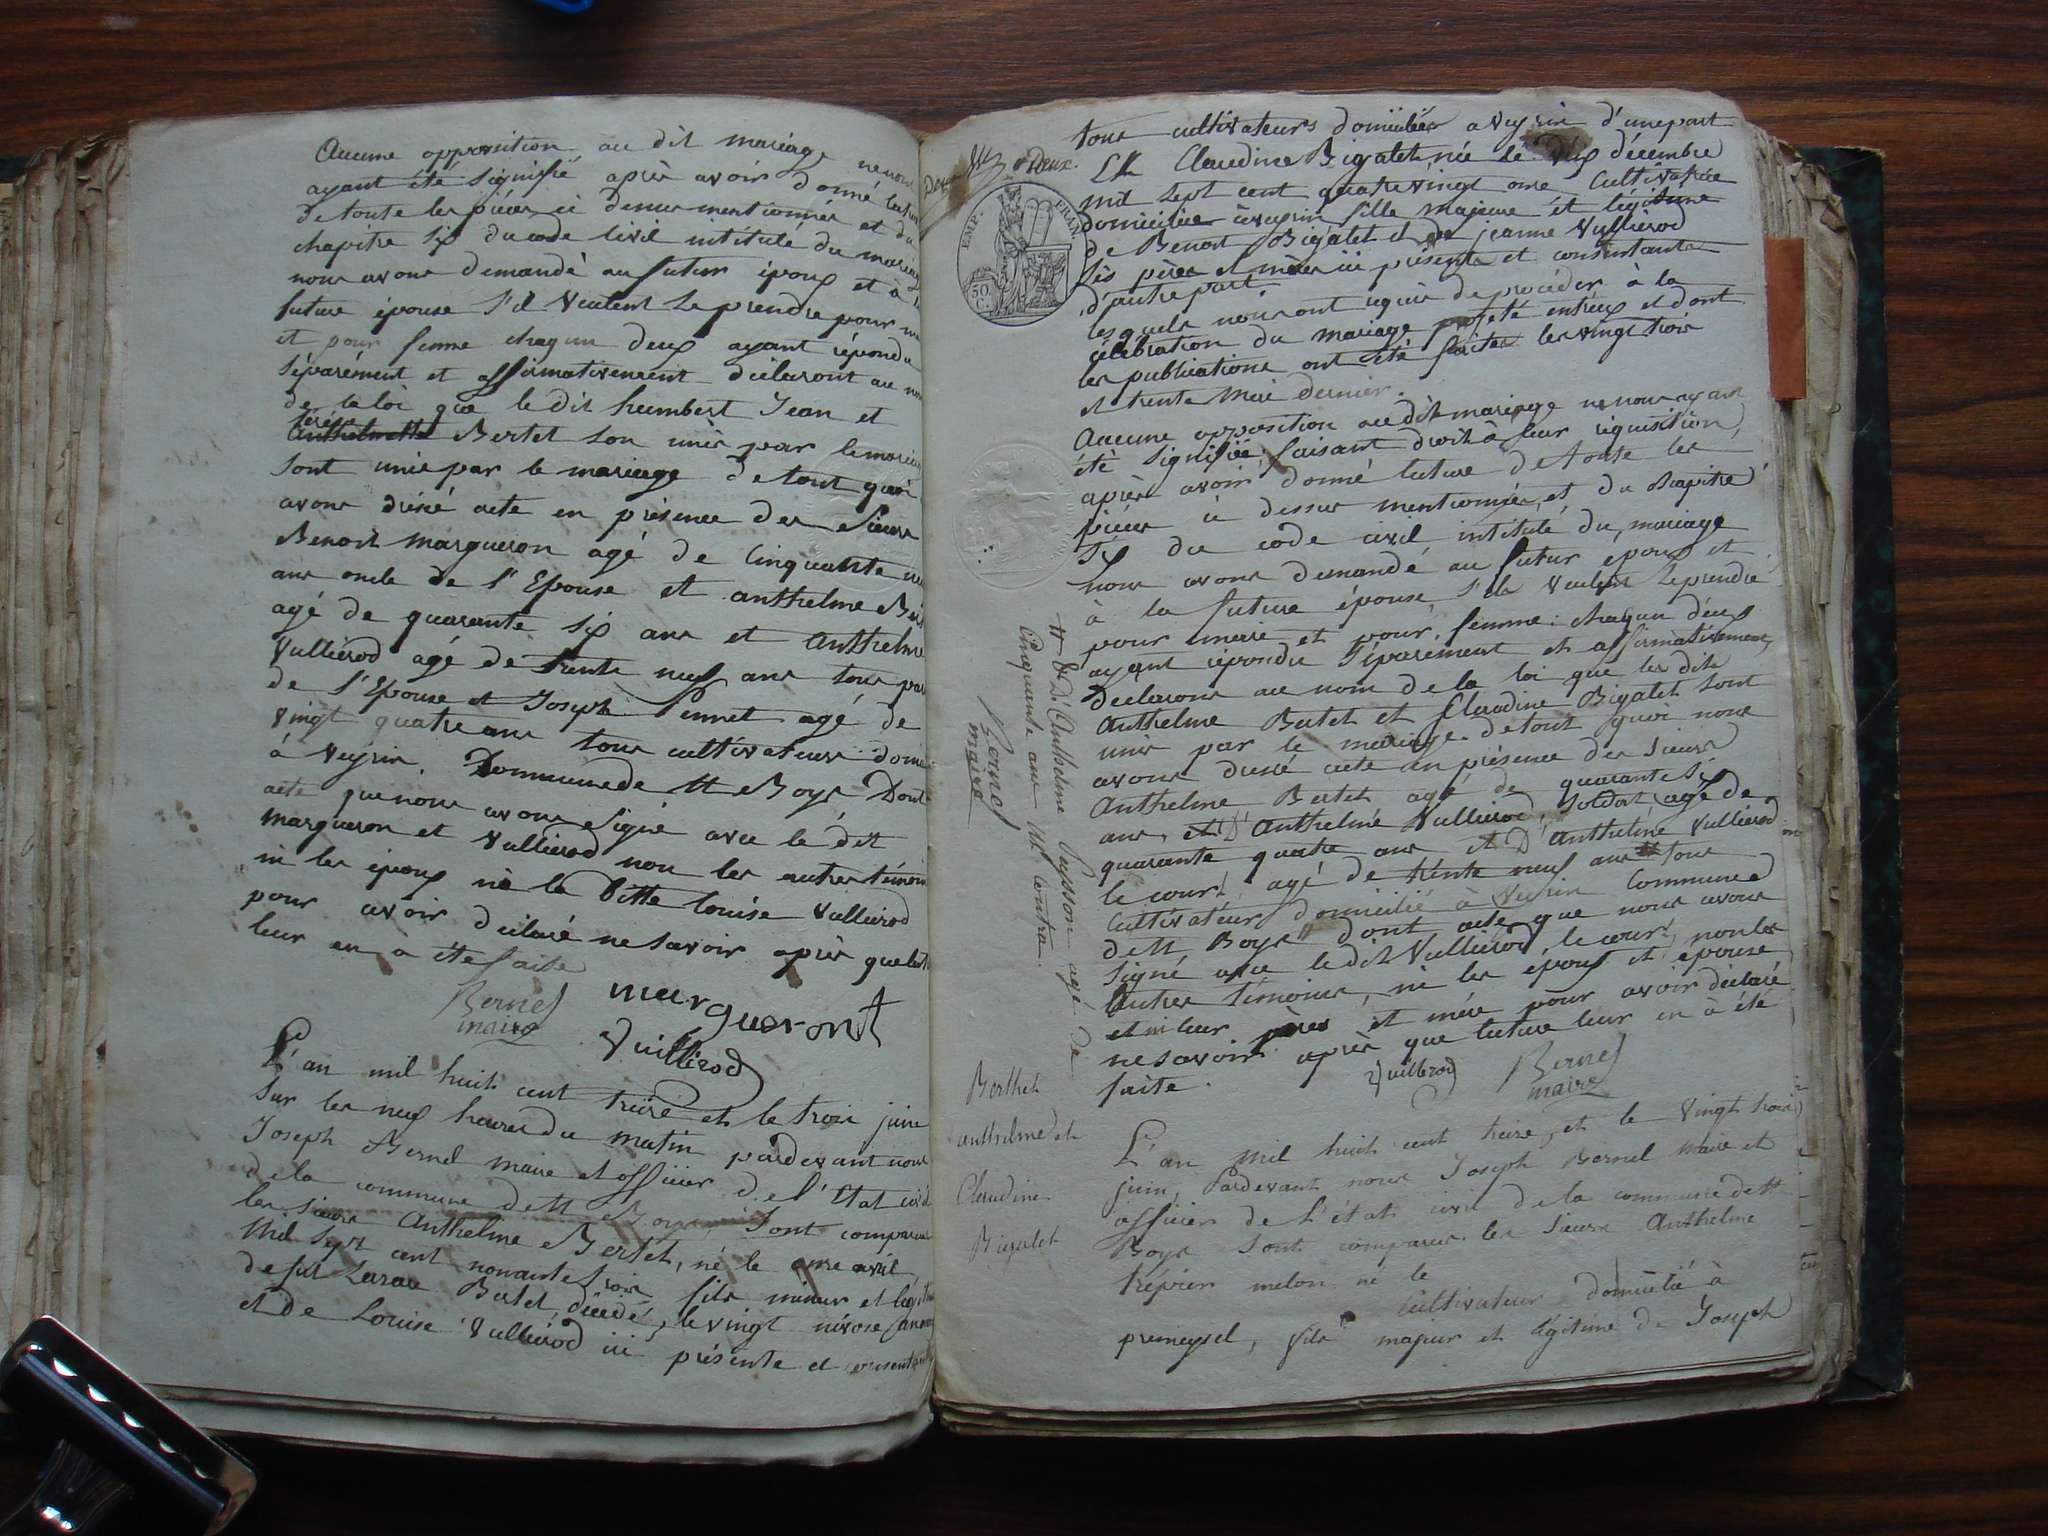 Aucune opposition au dit mariage ne nous
ayant été signifié après avoir donné lecture
de toute les pièces ci dessus mentionnées et du
chapitre six du code Civil intitulé du mariage
nous avons demandé au futur époux et à la
future épouse s'il veulent se prendre pour
et pour femme chaqun deux ayant répondu
séparément et affirmativement déclarons au nom
de la loi que le dit humbert Jean et
Bertet son
sont unis par le mariage de tout quoi
avons drésé acte en présence des sieurs
Benoit margueron agé de Cinquante
ans oncle de l'Epouse et anthelme
agé de quarante six ans et anthelme
Vullierod agé de trente neuf ans tous
de l'Epouse et Joseph Pennet agé de
vingt quatre ans tous cultivateurs
à Veyrin. Commune de St Boys Dont
acte que nous avons signé avec le dit
margueron et Vullierod non les autres témoins
ni les époux ni la ditte Louise Vullierod
pour avoir déclaré ne savoir après que
leur en à été faite
Bernel margueront
maire
Vuillerod
L'an mil huit cent treize et le trois juin
sur les neuf heures du matin pardevant nous
Joseph Bernel maire et officier de l'Etat civil
de la commune de St Boys, sont comparus
les sieurs Anthelme Bertet, né le onze avril
mil sept cent nonante trois fils mineur et
de fut Bertet, décédé, le vingt nivose
et de Louise Vullierod ici présente et
deux
EMP. FRAN
50 C.
tous cultivateurs domiciliés a veyrin d'une part
Et Claudine Bigalet née le dix décembre
mil sept cent quatre vingt onze Cultivatrice
domiciliée à veyrin fille majeure et légitime
de Benoit Bigalet et de jeanne Vullierod
ses père et mère ici présents et consentants
d'autre part.
lesquels nous ont requis de procéder à la
célébration du mariage projeté entr'eux et dont
les publications ont été faites les vingt trois
et trente Mai dernier.
Aucune opposition audit mariage ne nous ayant
été signifiée, faisant droit à leur réquisition,
après avoir donné lecture de toute les
pièces ci dessus mentionnées, et du chapitre
six du code civil intitulé du mariage
nous avons demandé au futur epoux et
à la future épouse s'ils veulent se prendre
pour mari et pour femme: chaqun deux
ayant répondu séparément et affirmativement,
déclarons au nom de la loi que les dits
Anthelme Bertet et Claudine Bigalet sont
unis par le mariage. de tout quoi nous
avons drésé acte en présence des sieurs
Anthelme Bertet agé de quarante six
ans, et D'Anthelme Vullierod, soldat agé de
quarante quatre ans et D'Anthelme Vullierod
le court agé de trente neuf ans # tous
Cultivateurs domicilié à Veyrin Commune
de St Boys dont acte que nous avons
signé avec le dit Vullierod, le court, non les
autres témoins, ni les époux et épouse
et ni leur père et mère pour avoir déclaré
ne savoir après que lecture leur en à été
faite.
Vuillerod Bernel
maire
# Et D'Anthelme Pusson agé de
Cinquante ans
Bernel
maire
Berthet
anthelme et
Claudine
Bigalet
L'an mil huit cent treize, et le vingt trois
juin, Pardevant nous Joseph Bernel Maire et
officier de l'état civil de la commune de St
Boys sont comparus les sieurs Anthelme
Trépier melon né le
Cultivateur domicilié à
premeysel, fils majeur et légitime de Joseph